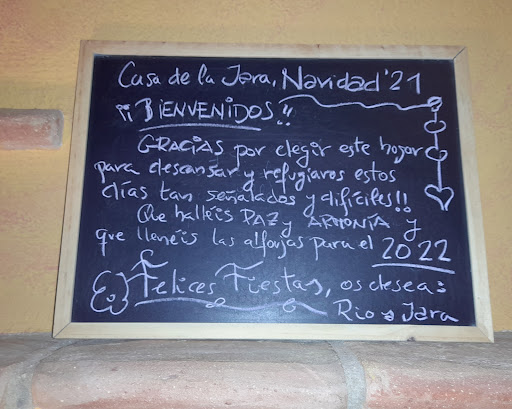 Casa de la Jara, Navidad '21
¡¡BIENVENIDOS!!
GRACIAS por elegir este hogar
para descansar y refugiaros estos
días tan señalados y difíciles!!
Que halléis PAZ y ARMONÍA y
que llenéis las alforjas para el 2022
Felices Fiestas, os desea:
Rio y Jara